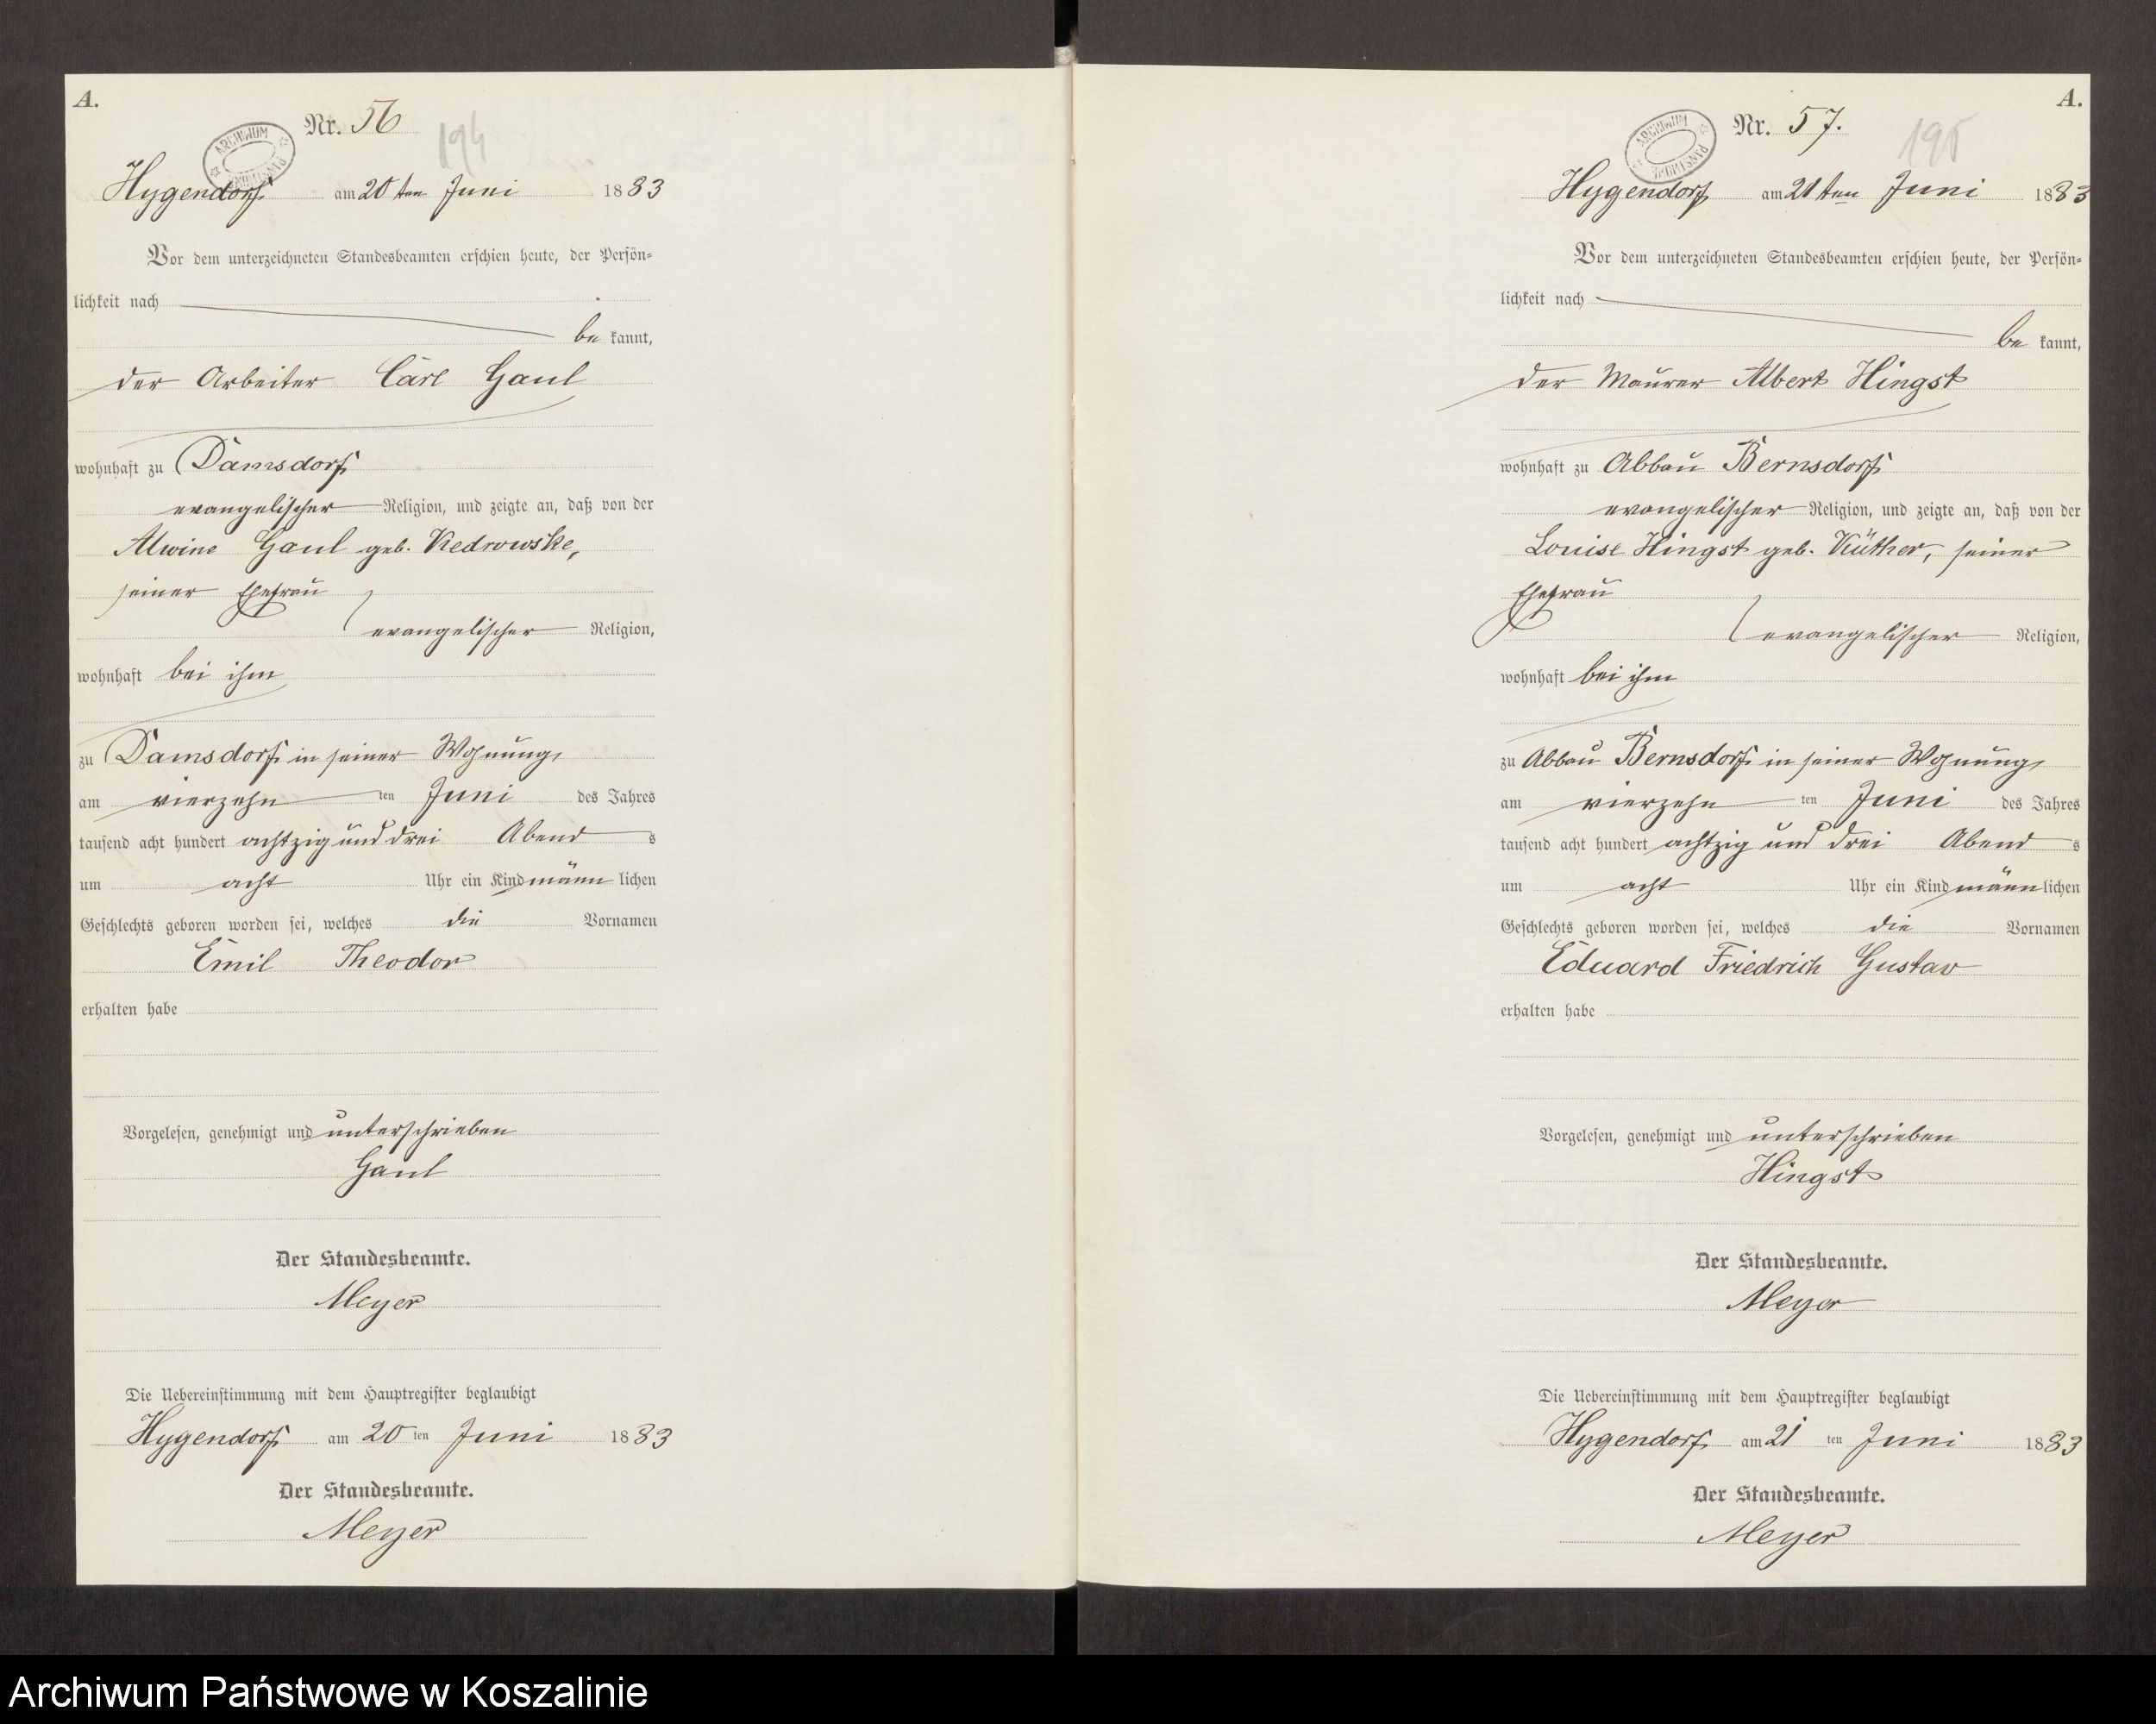 A.
Nr. 56
194
ARCHIWUM PAŃSTWOWE
Hygendorf am 20ten Juni 1883
Vor dem unterzeichneten Standesbeamten erschien heute, der Persön-
lichkeit nach
be kannt,
der Arbeiter Carl Gaul
wohnhaft zu Damsdorf
evangelischer Religion, und zeigte an, daß von der
Alwine Gaul geb. Kedrowske,
seiner Ehefrau
evangelischer Religion,
wohnhaft bei ihm
zu Damsdorf in seiner Wohnung,
am vierzehn ten Juni des Jahres
tausend acht hundert achtzig und drei Abend s
um acht Uhr ein Kind männ lichen
Geschlechts geboren worden sei, welches die Vornamen
Emil Theodor
erhalten habe
Vorgelesen, genehmigt und unterschrieben
Gaul
Der Standesbeamte.
Meyer
Die Uebereinstimmung mit dem Hauptregister beglaubigt
Hygendorf am 20 ten Juni 1883
Der Standesbeamte.
Meyer
A.
Nr. 57.
195
ARCHIWUM PAŃSTWOWE
Hygendorf am 21ten Juni 1883
Vor dem unterzeichneten Standesbeamten erschien heute, der Persön-
lichkeit nach
be kannt,
der Maurer Albert Hingst
wohnhaft zu Abbau Bernsdorf
evangelischer Religion, und zeigte an, daß von der
Louise Hingst geb. Küther, seiner
Ehefrau
evangelischer Religion,
wohnhaft bei ihm
zu Abbau Bernsdorf in seiner Wohnung,
am vierzehn ten Juni des Jahres
tausend acht hundert achtzig und drei Abend s
um acht Uhr ein Kind männ lichen
Geschlechts geboren worden sei, welches die Vornamen
Eduard Friedrich Gustav
erhalten habe
Vorgelesen, genehmigt und unterschrieben
Hingst
Der Standesbeamte.
Meyer
Die Uebereinstimmung mit dem Hauptregister beglaubigt
Hygendorf am 21 ten Juni 1883
Der Standesbeamte.
Meyer
Archiwum Państwowe w Koszalinie